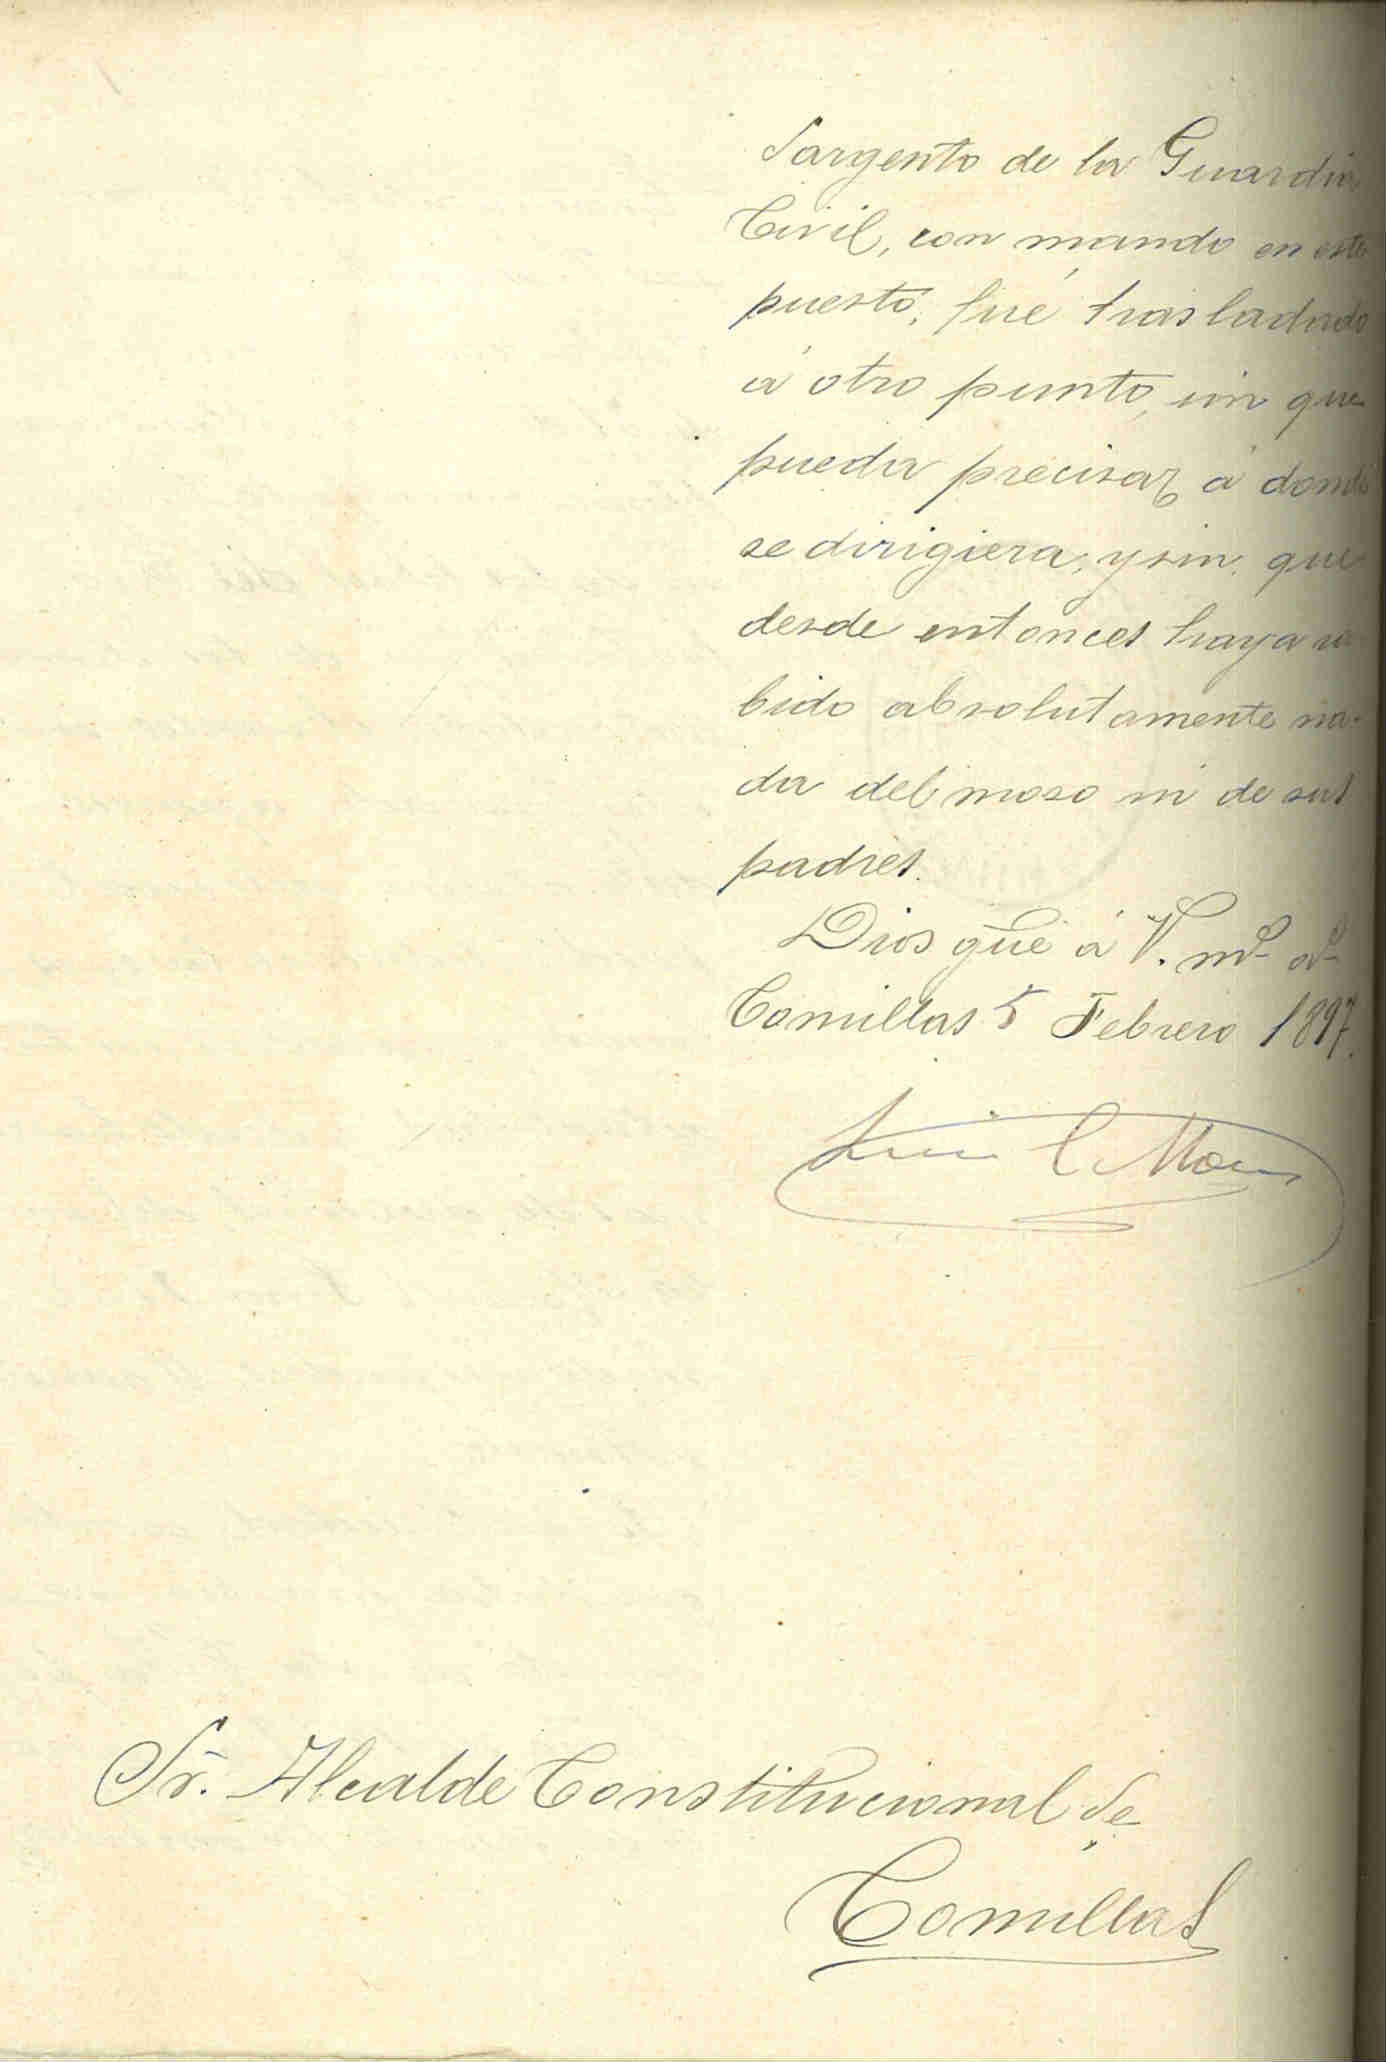 Sargento de la Guardia
Civil, con mando en este
puesto, fué trasladado
á otro punto, sin que
pueda precisar á donde
se dirigiera, y sin que
desde entonces haya sa-
bido absolutamente na-
da del moso ni de sus
padres.
Dios gue á V. ms. as.
Comillas 5 Febrero 1897.
Sr. Alcalde Constitucional de
Comillas